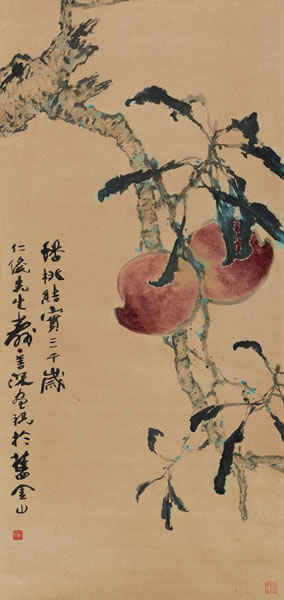 蟠桃結實三千歲
仁俊先生壽善深畫祝於舊金山